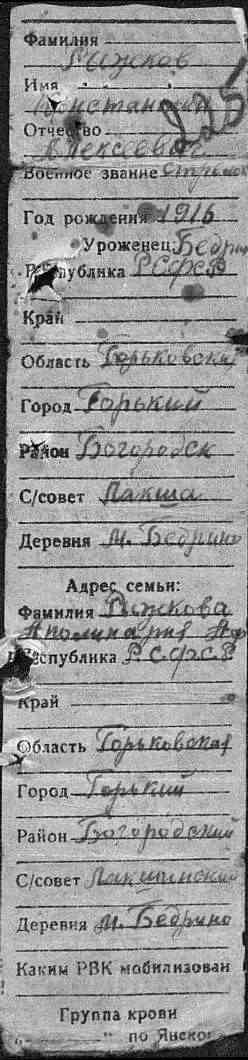 Фамилия
Рыжков
Имя
Константин
Отчество
Алексеевич
225
Военное звание Стрелок
Год рождения 1916
Уроженец Бедрин
Республика РСФСР
Край
Область Горьковская
Город Горький
Район Богородск
С/совет Лакша
Деревня М. Бедрино
Адрес семьи:
Фамилия Рыжкова
Аполинария
Республика РСФСР
Край
Область Горьковская
Город Горький
Район Богородский
С/совет Лакшинский
Деревня М. Бедрино
Каким РВК мобилизован
Группа крови
„ “ по Янско